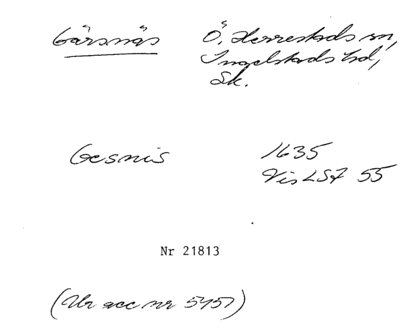 Gärsnäs Ö. Herrestads sn,
Ingelstads hd,
Sk.
Gesnis 1635
Vis LSF 55
Nr 21813
(Ur acc nr 5151)